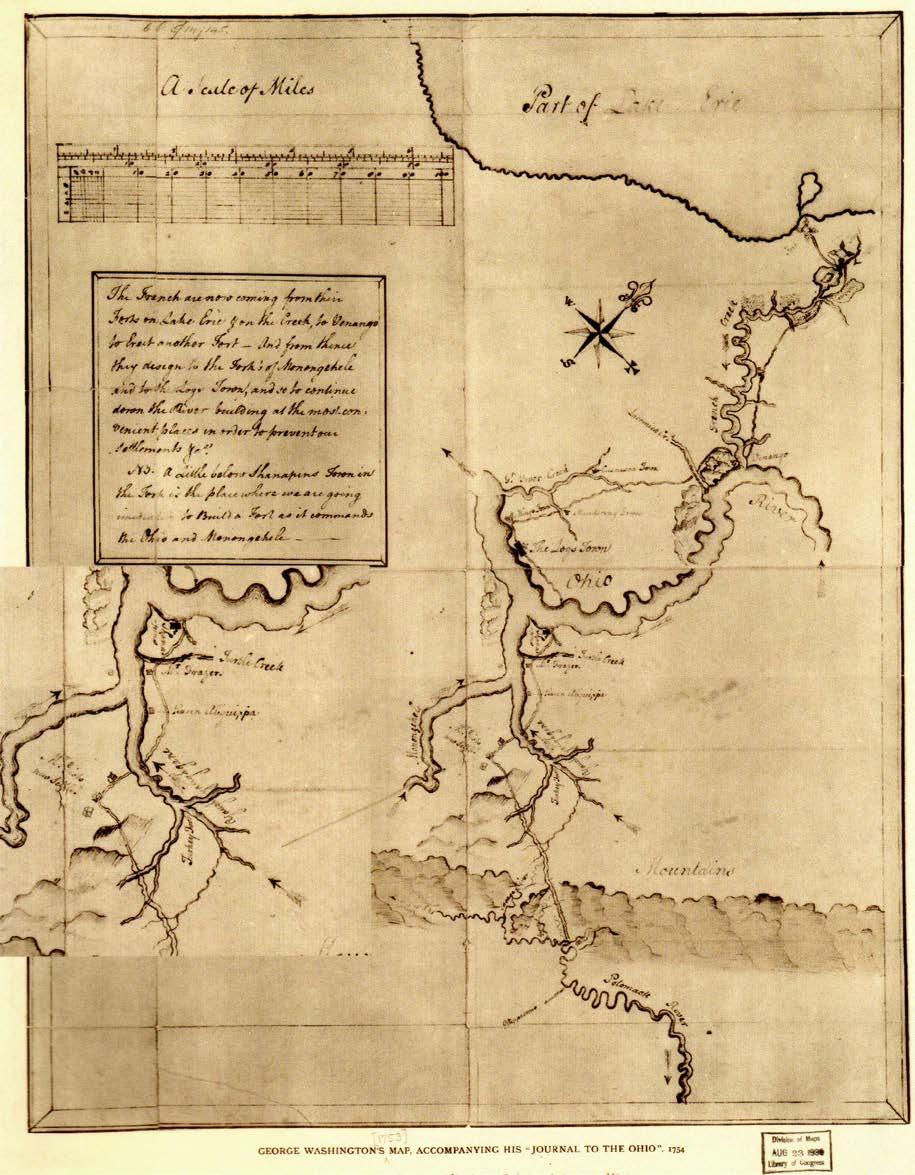 A Scale of Miles
Part of Lake Erie
10 20 30 40 50 60 70 80 90 100
The French are now coming from their
Forts on Lake Erie & on the Creek, to Venango
to Erect another Fort — And from thence
they design to the Fork's of Monongehele
and to the Logs Town, and so to continue
down the River building at the most con-
venient places in order to prevent our
Settlements &ca
NB. A little below Shanapins Town in
the Fork is the place where we are going
to Build a Fort as it commands
the Ohio and Monongehele
French
Creek
Venango
River
Beaver Creek
Murdering Town
The Logs Town
Ohio
Turtle Creek
Mr. Frazer
Queen Aliquippa
Turkey Foot
Turtle Creek
Mr. Frazer
Queen Aliquippa
Turkey Foot
Mountains
Potomack River
[1753]
GEORGE WASHINGTON'S MAP, ACCOMPANYING HIS "JOURNAL TO THE OHIO". 1754
Division of Maps
AUG 23
Library of Congress